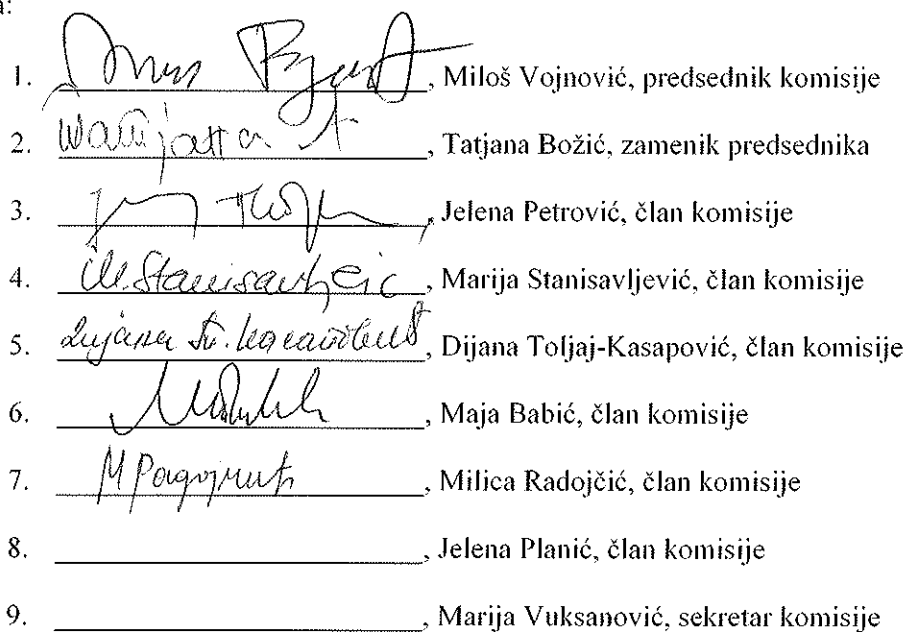 a:
1. , Miloš Vojnović, predsednik komisije
2. , Tatjana Božić, zamenik predsednika
3. , Jelena Petrović, član komisije
4. M. Stanisavljević, Marija Stanisavljević, član komisije
5. , Dijana Toljaj-Kasapović, član komisije
6. , Maja Babić, član komisije
7. , Milica Radojčić, član komisije
8. , Jelena Planić, član komisije
9. , Marija Vuksanović, sekretar komisije